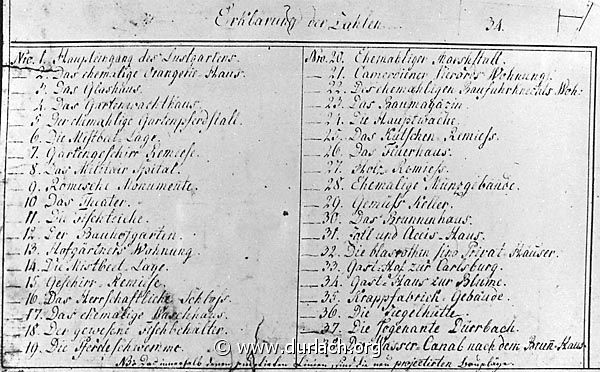 Erklärung der Zahlen. 34.
Nro. 1. Haupteingang des Lustgartens.
2. Das ehemalige Orangerie Haus.
3. Das Glashaus.
4. Das Gartenwachthaus.
5. Der ehmahlige Gartenpferdstall.
6. Die Mistbeet Lage.
7. Gartengeschirr Remise.
8. Das Militair Spital.
9. Römische Monumente.
10. Das Theater.
11. Die Fischteiche.
12. Der Bauhofgarten.
13. Hofgärtners Wohnung
14. Die Mistbeet Lage.
15. Geschirr Remise
16. Das Herrschaftliche Schloss.
17. Das ehemalige Waschhaus.
18. Der gewesene Fischbehälter.
19. Die Pferdeschwemme.
Nro. 20. Ehemahliger Marschstall.
21. Wohnung.
22. Des ehemahligen Baufuhrknechts Woh:
23. Das Baumagazin
24. Die Hauptwache.
25. Das Kutschen Remiess.
26. Das Feuerhaus.
27. Holz Remiess.
28. Ehemalige Münzgebäude.
29. Gemiess Keller.
30. Das Brunnenhaus.
31. Zoll und Accis Haus.
32. Die Privat Häuser.
33. Gast Hof zur Carlsburg.
34. Gast Haus zur Blume.
35. Krappfabrick Gebäude.
36. Die Ziegelhütte
37. Die Sogenante
38. Der Wasser Canal nach dem Haus
© www.durlach.org